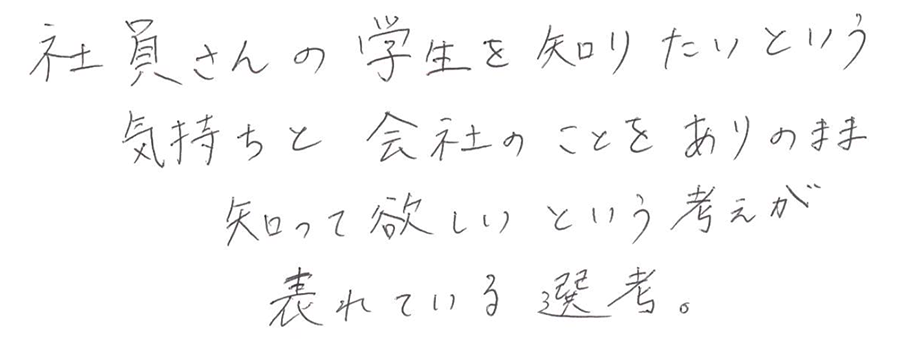 社員さんの学生を知りたいという
気持ちと会社のことをありのまま
知って欲しいという考えが
表れている選考。